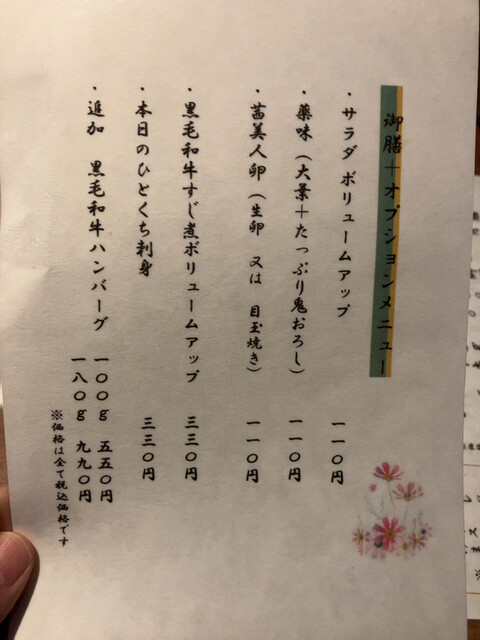 御膳＋オプションメニュー
・サラダ ボリュームアップ 一一〇円
・薬味（大葉＋たっぷり鬼おろし） 一一〇円
・茜美人卵（生卵 又は 目玉焼き） 一一〇円
・黒毛和牛すじ煮ボリュームアップ 三三〇円
・本日のひとくち刺身 三三〇円
・追加 黒毛和牛ハンバーグ 一〇〇ｇ 五五〇円
一八〇ｇ 九九〇円
※価格は全て税込価格です